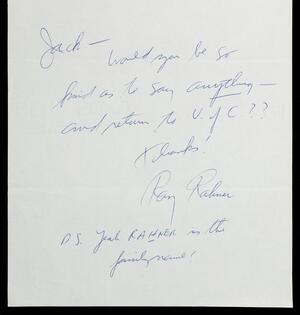 Jack—
Would you be so
kind as to say anything—
and return to U. of C??
Thanks!
Ray Rahner
P.S. Yeah RAHNER is the
family name!